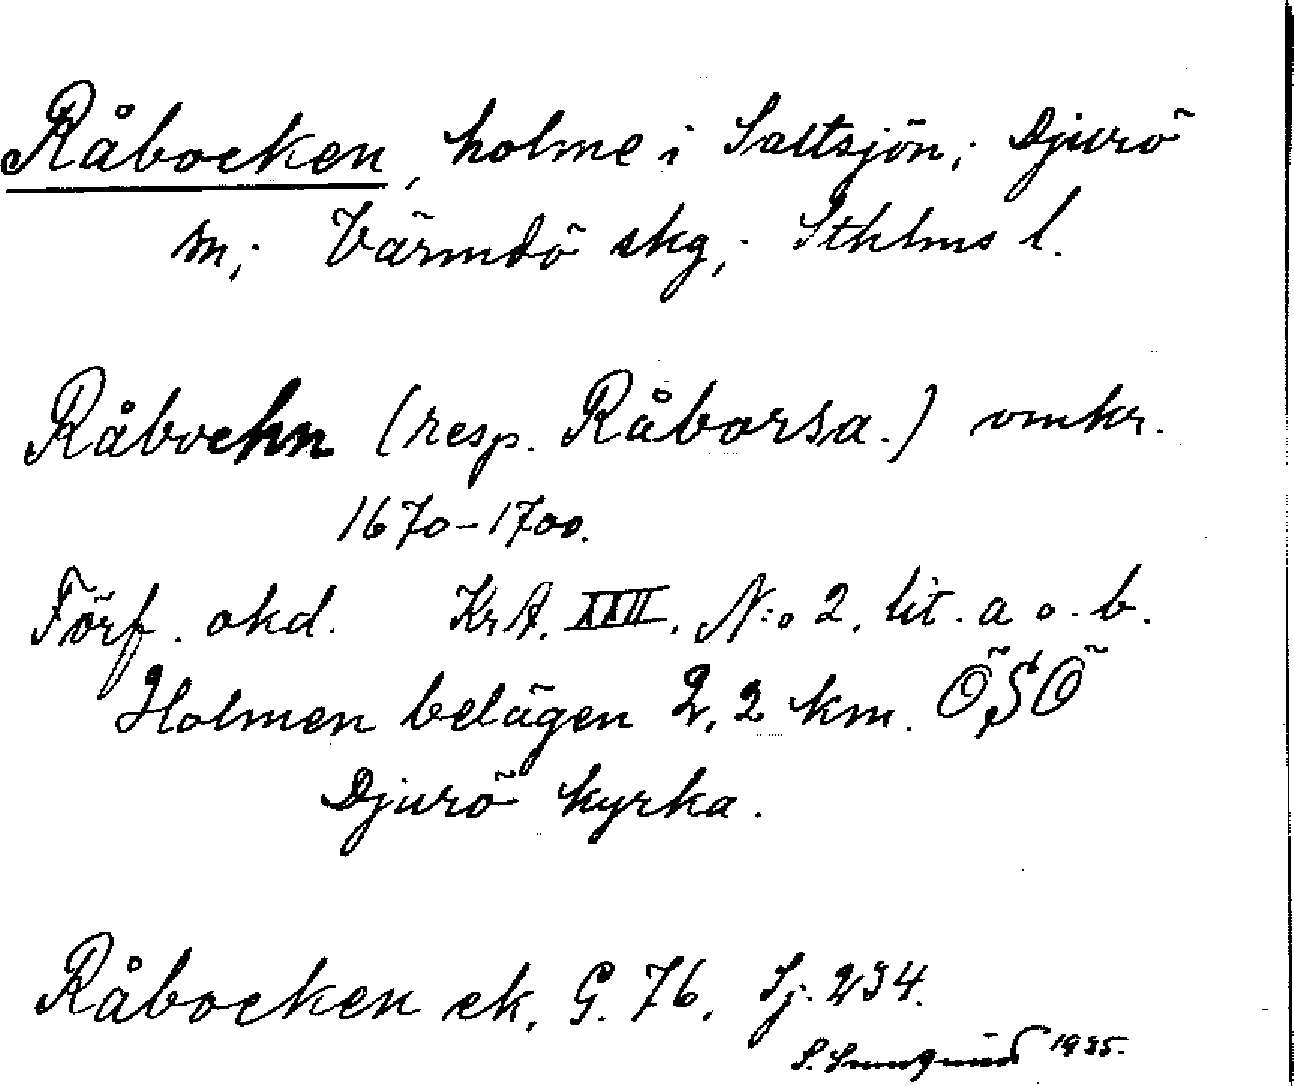 Råbocken, holme i Saltsjön; Djurö
sn; Värmdö skg; Sthlms l.
Råbochn (resp. Råborsa.) omkr.
1670-1700.
Förf. okd. KrA. XXII. N:o 2. lit. a o. b.
Holmen belägen 2,2 km. ÖSÖ
Djurö kyrka.
Råbocken ek. G. 76. Sj. 234.
S. 1935.